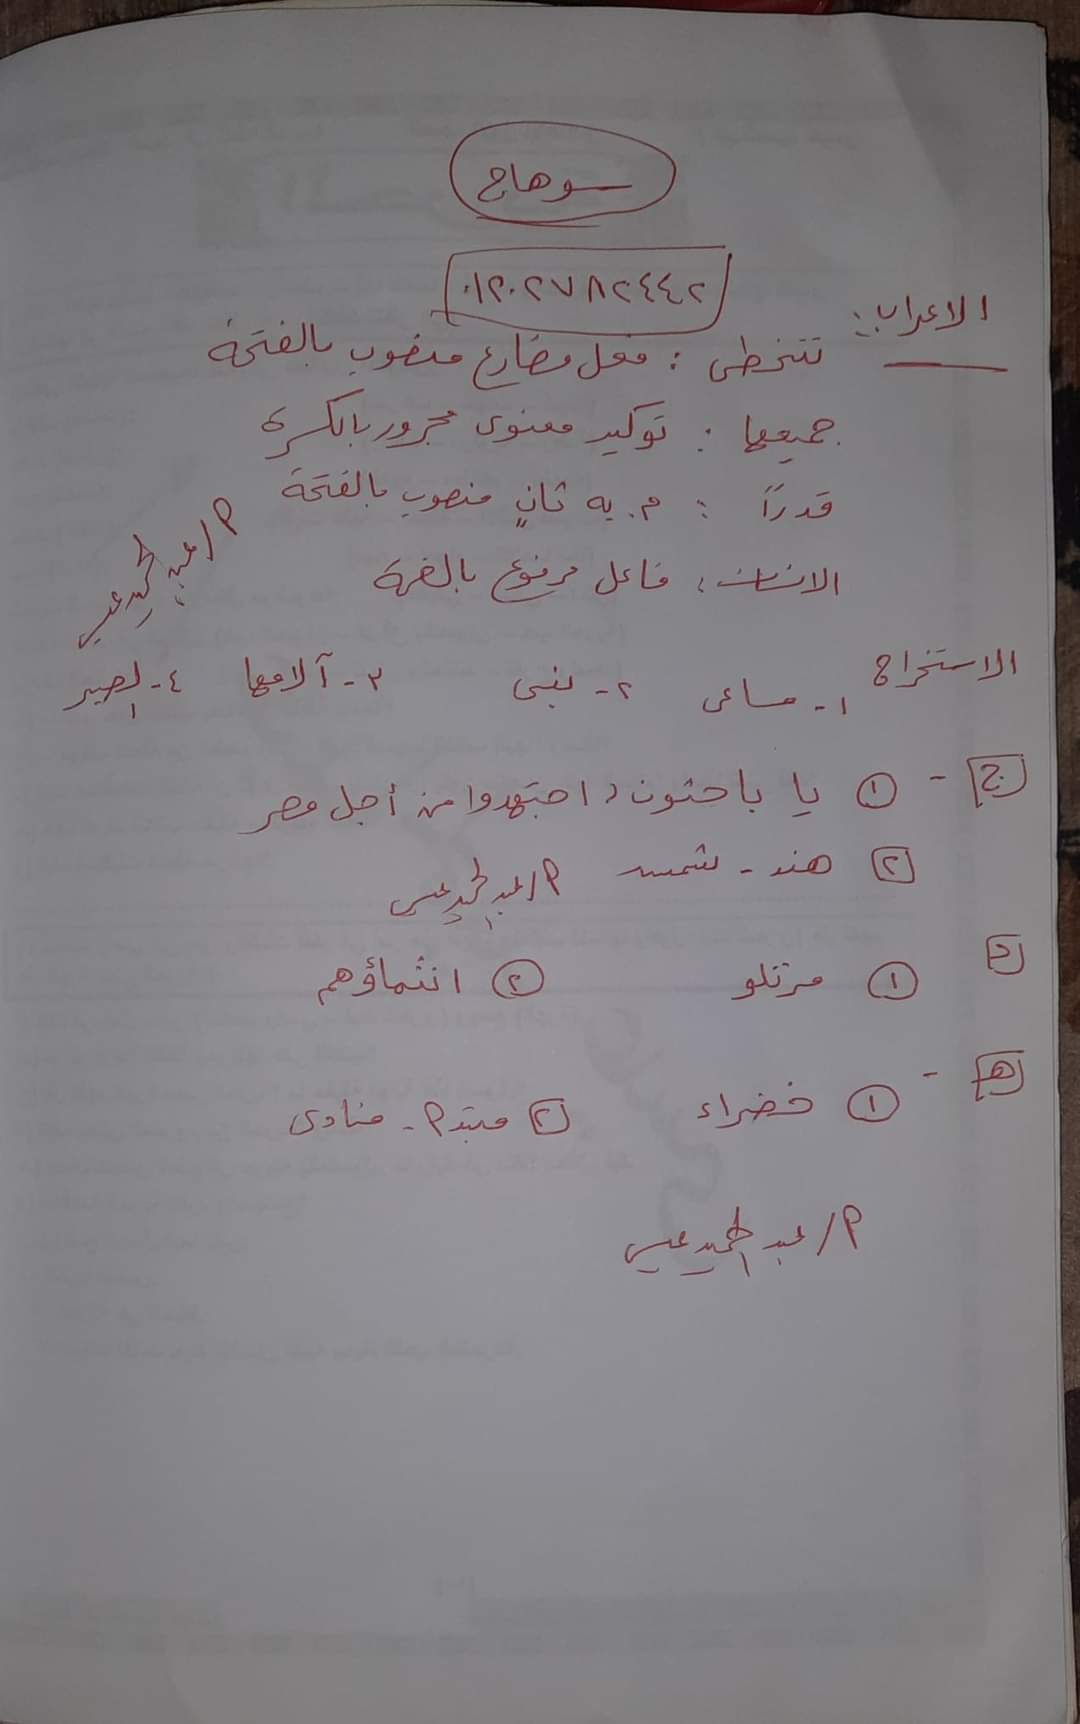 سوهاج
٠١٢٠٢٧٨٢٤٤٢
الاعراب :
تتخطى : فعل مضارع منصوب بالفتحة
جميعها : توكيد معنوى مجرور بالكسرة
قدرًا : م. به ثانٍ منصوب بالفتحة
الانسان : فاعل مرفوع بالضمة
م/عبد الحميد عيسى
الاستخراج
١- مساعى ٢- نفسى ٣- آلامها ٤- لصبر
ج - ١ يا باحثون ، اجتهدوا من أجل مصر
٢ هند - شمس
م/عبد الحميد عيسى
د ١ مرتلو ٢ انتماؤهم
هـ - ١ خضراء ٢ مبتدم - منادى
م/عبد الحميد عيسى